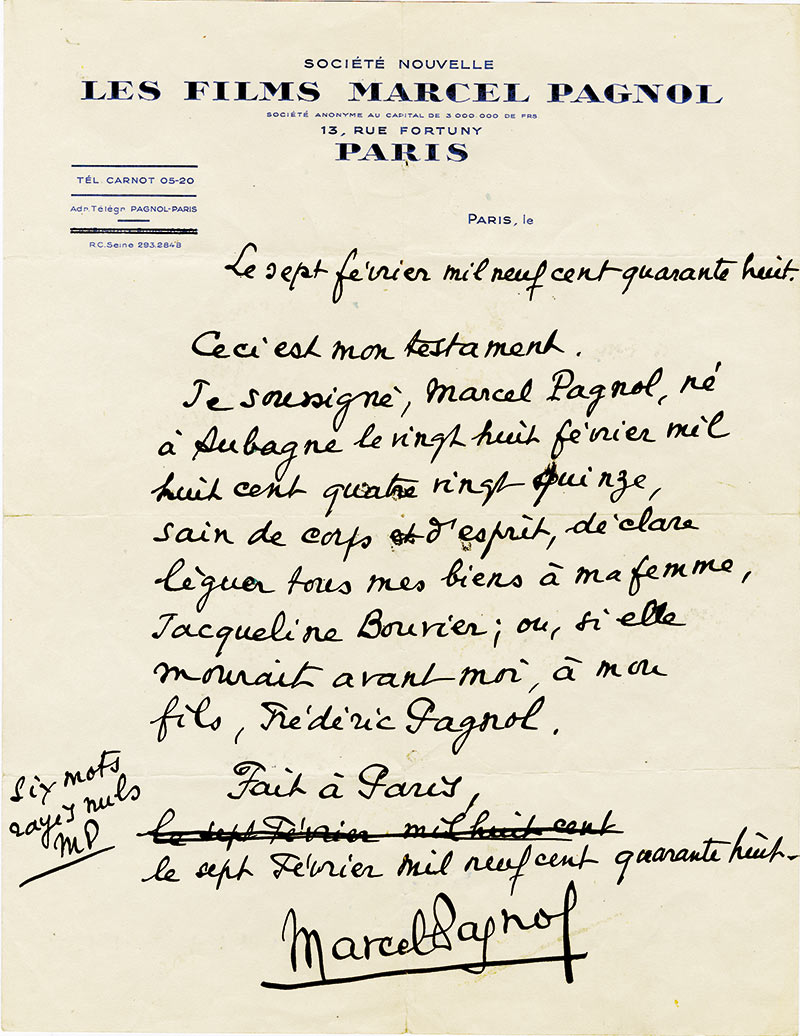 SOCIÉTÉ NOUVELLE
LES FILMS MARCEL PAGNOL
SOCIÉTÉ ANONYME AU CAPITAL DE 3 000 000 DE FRS
13, RUE FORTUNY
PARIS
TÉL. CARNOT 05-20
Adr. Télégr. PAGNOL-PARIS
R.C. Seine 293.284 B
PARIS, le
Le sept février mil neuf cent quarante huit.
Ceci est mon testament.
Je soussigné, Marcel Pagnol, né
à Aubagne le vingt huit février mil
huit cent quatre vingt quinze,
sain de corps et d'esprit, déclare
léguer tous mes biens à ma femme,
Jacqueline Bouvier ; ou, si elle
mourait avant moi, à mon
fils, Frédéric Pagnol.
Fait à Paris,
le sept Février mil huit cent
le sept Février mil neuf cent quarante huit.
Six mots
rayés nuls
MP
Marcel Pagnol